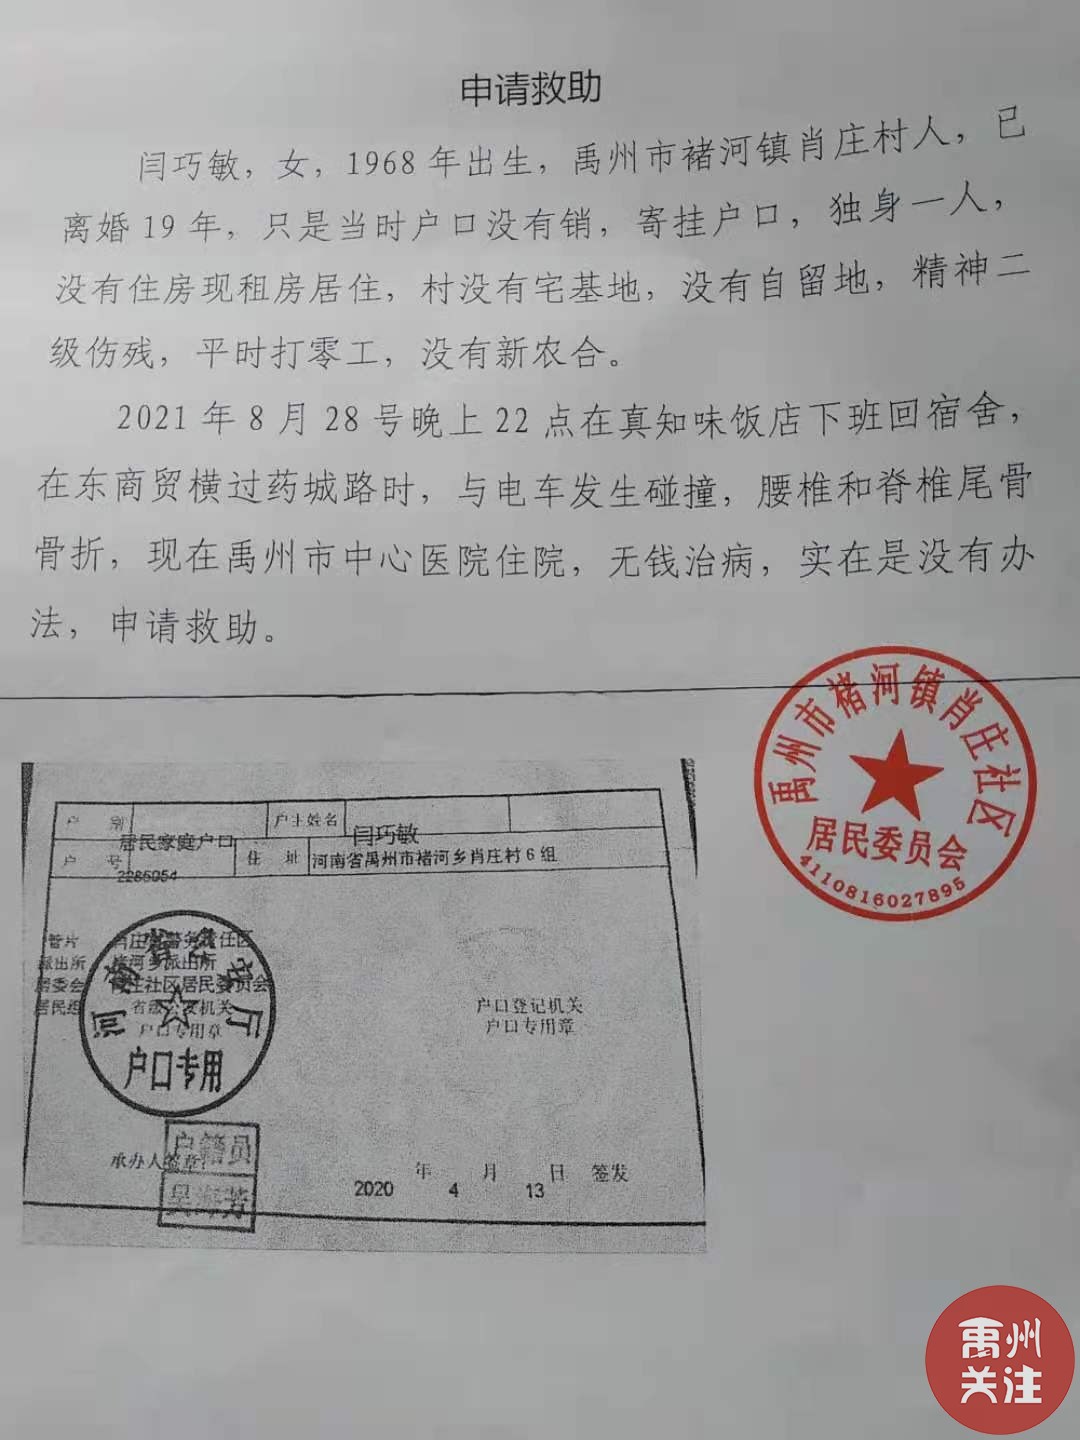 申请救助
闫巧敏，女，1968年出生，禹州市褚河镇肖庄村人，已
离婚19年，只是当时户口没有销，寄挂户口，独身一人，
没有住房现租房居住，村没有宅基地，没有自留地，精神二
级伤残，平时打零工，没有新农合。
2021年8月28号晚上22点在真知味饭店下班回宿舍，
在东商贸横过药城路时，与电车发生碰撞，腰椎和脊椎尾骨
骨折，现在禹州市中心医院住院，无钱治病，实在是没有办
法，申请救助。
禹州市褚河镇肖庄社区
居民委员会
4110816027895
户 别 居民家庭户口 户主姓名 闫巧敏
户 号 住 址 河南省禹州市褚河乡肖庄村6组
派出所 褚河乡派出所
居委会 肖庄社区居民委员会
户口专用章
户口专用
户口登记机关
户口专用章
承办人签章：
户籍员
2020年4月13日 签发
禹州
关注